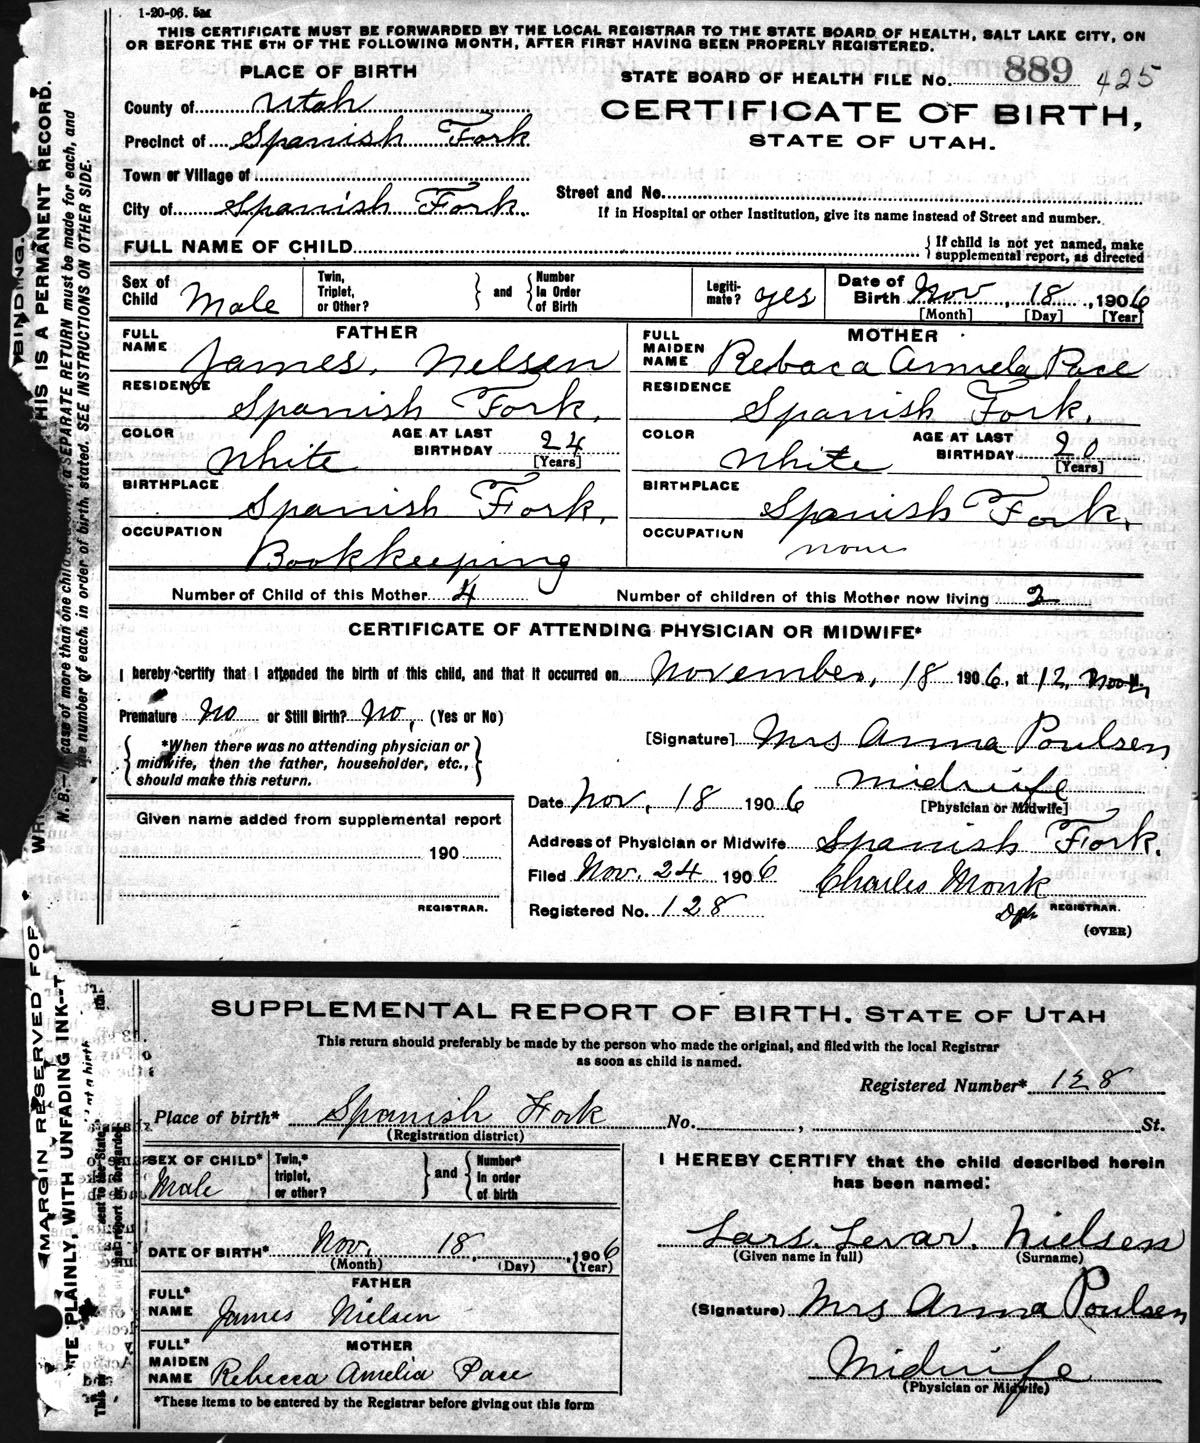 1-20-06. 5M
THIS CERTIFICATE MUST BE FORWARDED BY THE LOCAL REGISTRAR TO THE STATE BOARD OF HEALTH, SALT LAKE CITY, ON
OR BEFORE THE 5TH OF THE FOLLOWING MONTH, AFTER FIRST HAVING BEEN PROPERLY REGISTERED.
PLACE OF BIRTH
STATE BOARD OF HEALTH FILE No. 889 425
County of Utah
CERTIFICATE OF BIRTH,
Precinct of Spanish Fork
STATE OF UTAH.
Town or Village of
Street and No.
City of Spanish Fork.
If in Hospital or other Institution, give its name instead of Street and number.
FULL NAME OF CHILD
{ If child is not yet named, make
supplemental report, as directed
Sex of Child Male
Twin, Triplet, or Other? } and { Number In Order of Birth
Legiti-mate? yes
Date of Birth Nov, 18, 1906
[Month] [Day] [Year]
FATHER
FULL NAME James, Nelsen
RESIDENCE Spanish Fork.
COLOR White AGE AT LAST BIRTHDAY 24 [Years]
BIRTHPLACE Spanish Fork.
OCCUPATION Bookkeeping
MOTHER
FULL MAIDEN NAME Rebaca Amela Pace
RESIDENCE Spanish Fork.
COLOR White AGE AT LAST BIRTHDAY 20 [Years]
BIRTHPLACE Spanish Fork.
OCCUPATION none
Number of Child of this Mother 4 Number of children of this Mother now living 2
CERTIFICATE OF ATTENDING PHYSICIAN OR MIDWIFE*
I hereby certify that I attended the birth of this child, and that it occurred on November, 18 1906, at 12, Noon
Premature No or Still Birth? No, (Yes or No)
{ *When there was no attending physician or
midwife, then the father, householder, etc.,
should make this return. }
[Signature] Mrs Anna Poulsen
midwife
Date Nov, 18 1906 [Physician or Midwife]
Given name added from supplemental report
190
REGISTRAR.
Address of Physician or Midwife Spanish Fork.
Filed Nov. 24 1906 Charles Monk
Registered No. 128 Dpt. REGISTRAR.
(OVER)
MARGIN RESERVED FOR BINDING.
WRITE PLAINLY, WITH UNFADING INK—THIS IS A PERMANENT RECORD.
N. B.—In case of more than one child a SEPARATE RETURN must be made for each, and
the number of each, in order of birth, stated. SEE INSTRUCTIONS ON OTHER SIDE.
SUPPLEMENTAL REPORT OF BIRTH, STATE OF UTAH
This return should preferably be made by the person who made the original, and filed with the local Registrar
as soon as child is named.
Registered Number* 128
Place of birth* Spanish Fork No. , St.
(Registration district)
SEX OF CHILD* Male
Twin,* triplet, or other? } and { Number* In order of birth
I HEREBY CERTIFY that the child described herein
has been named:
DATE OF BIRTH* Nov. 18, 1906
(Month) (Day) (Year)
Lars. Levar. Nielsen
(Given name in full) (Surname)
FATHER
FULL* NAME James Nielsen
(Signature) Mrs Anna Poulsen
MOTHER
FULL* MAIDEN NAME Rebecca Amelia Pace
Midwife
(Physician or Midwife)
*These items to be entered by the Registrar before giving out this form